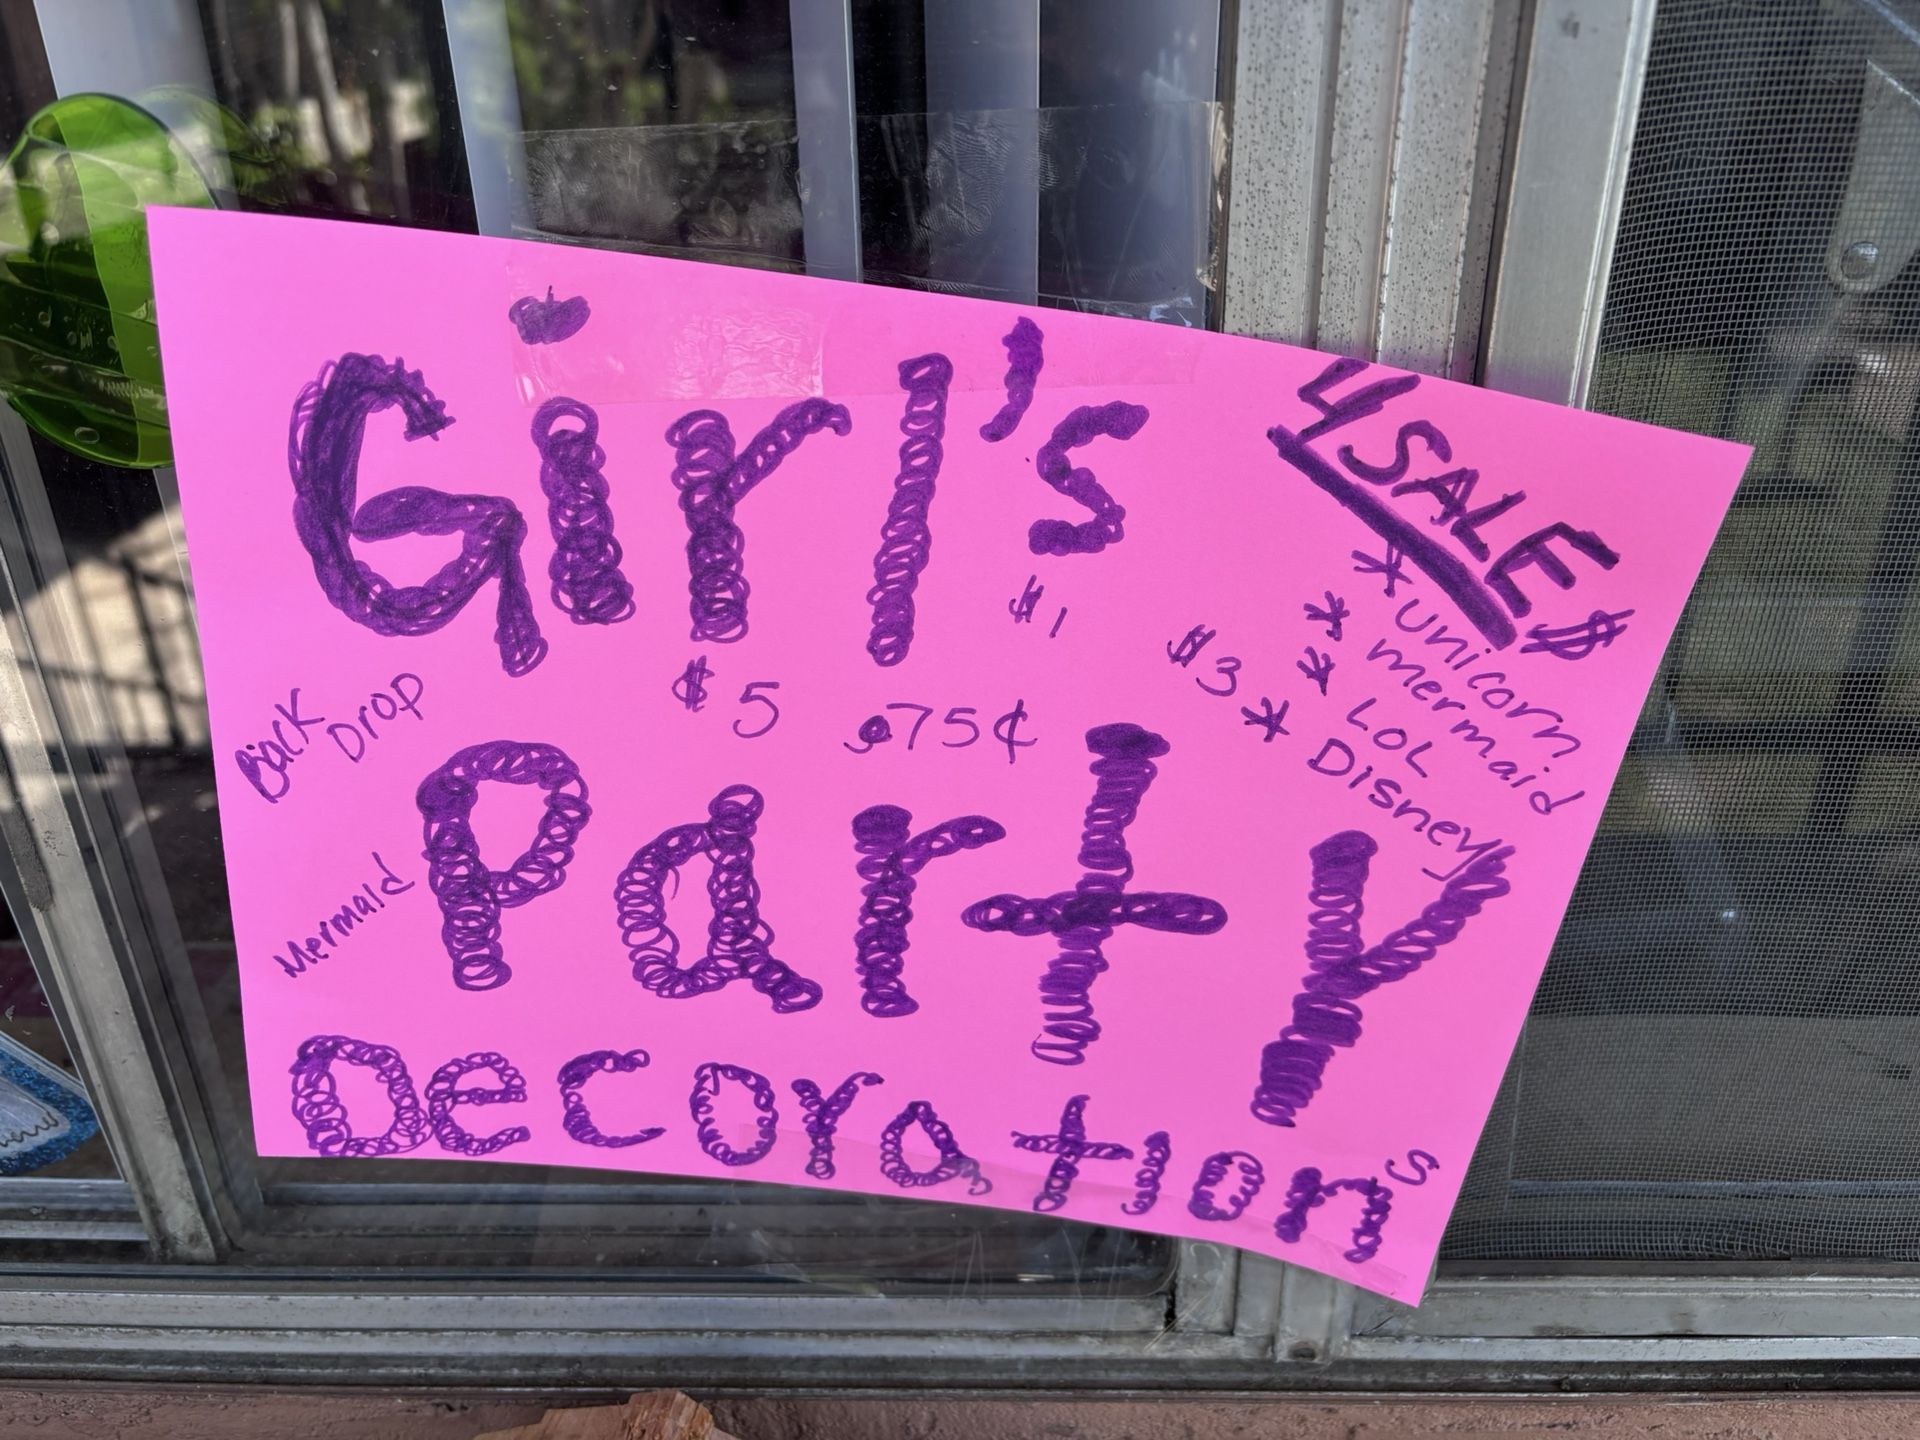 Girl's
4 SALE $
* Unicorn
* Mermaid
* LOL
* Disney
$1
$3
$5
.75¢
Back
Drop
Mermaid
Party
Decorations